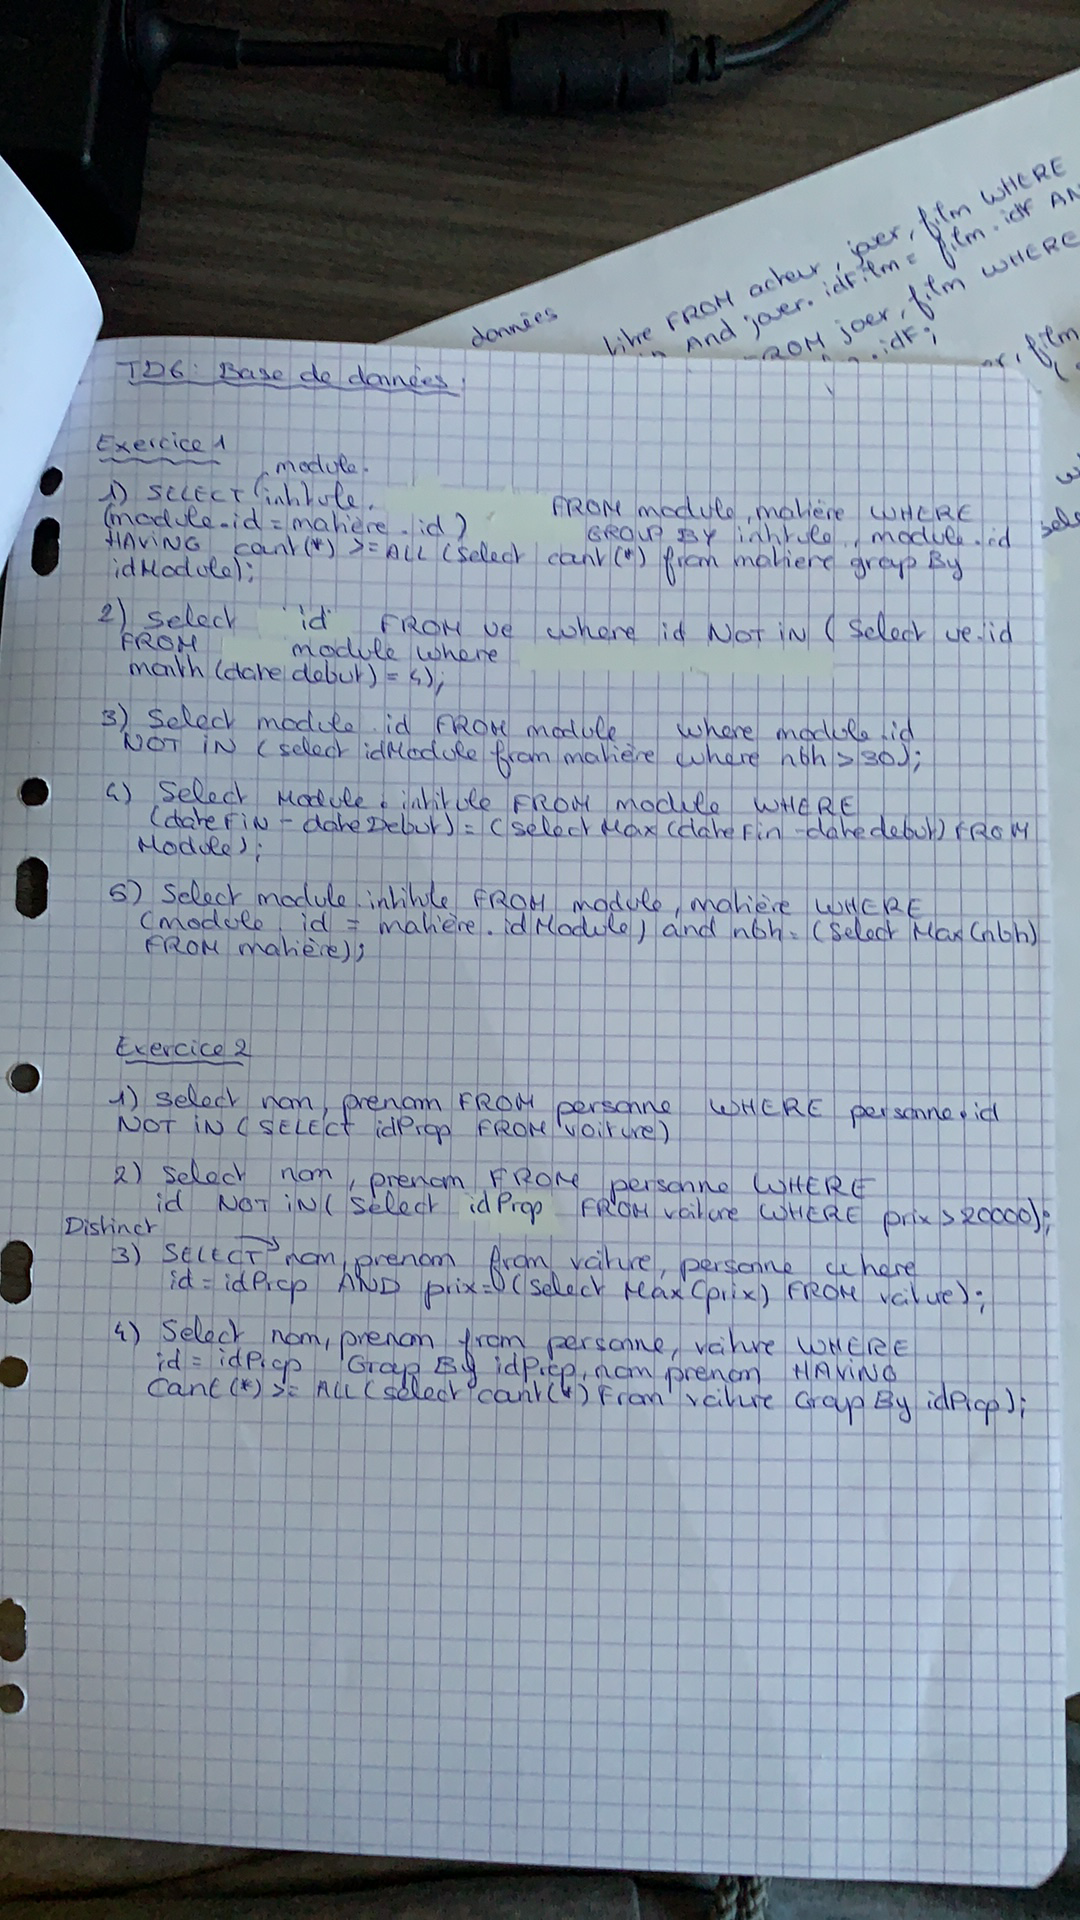 données
titre FROM acteur, jouer, film WHERE
And jouer.idFilm = film.idF AN
ROM jouer, film WHERE
.idF;
TD6: Base de données
Exercice 1
module.
1) SELECT intitule, FROM module, matière WHERE
(module.id = matière.id) GROUP BY intitule, module.id
HAVING count(*) >= ALL (select count(*) from matiere group By
idModule);
2) Select id FROM ue where id NOT IN (Select ue.id
FROM module where
month (date debut) = 4);
3) Select module.id FROM module where module.id
NOT IN (select idModule from matière where nbh > 30);
4) Select Module.intitule FROM module WHERE
(dateFIN - dateDebut) = (Select Max (dateFin - datedebut) FROM
Module);
5) Select module.intitule FROM module, matière WHERE
(module.id = matière.idModule) and nbh = (Select Max(nbh)
FROM matière);
Exercice 2
1) Select nom, prenom FROM personne WHERE personne.id
NOT IN (SELECT idProp FROM voiture)
2) Select nom, prenom FROM personne WHERE
id NOT IN (Select idProp FROM voiture WHERE prix > 20000);
Distinct
3) SELECT nom, prenom from voiture, personne where
id = idProp AND prix = (Select Max(prix) FROM voiture);
4) Select nom, prenom from personne, voiture WHERE
id = idProp Group By idProp, nom, prenom HAVING
Count (*) >= ALL (select count(*) From voiture Group By idProp);